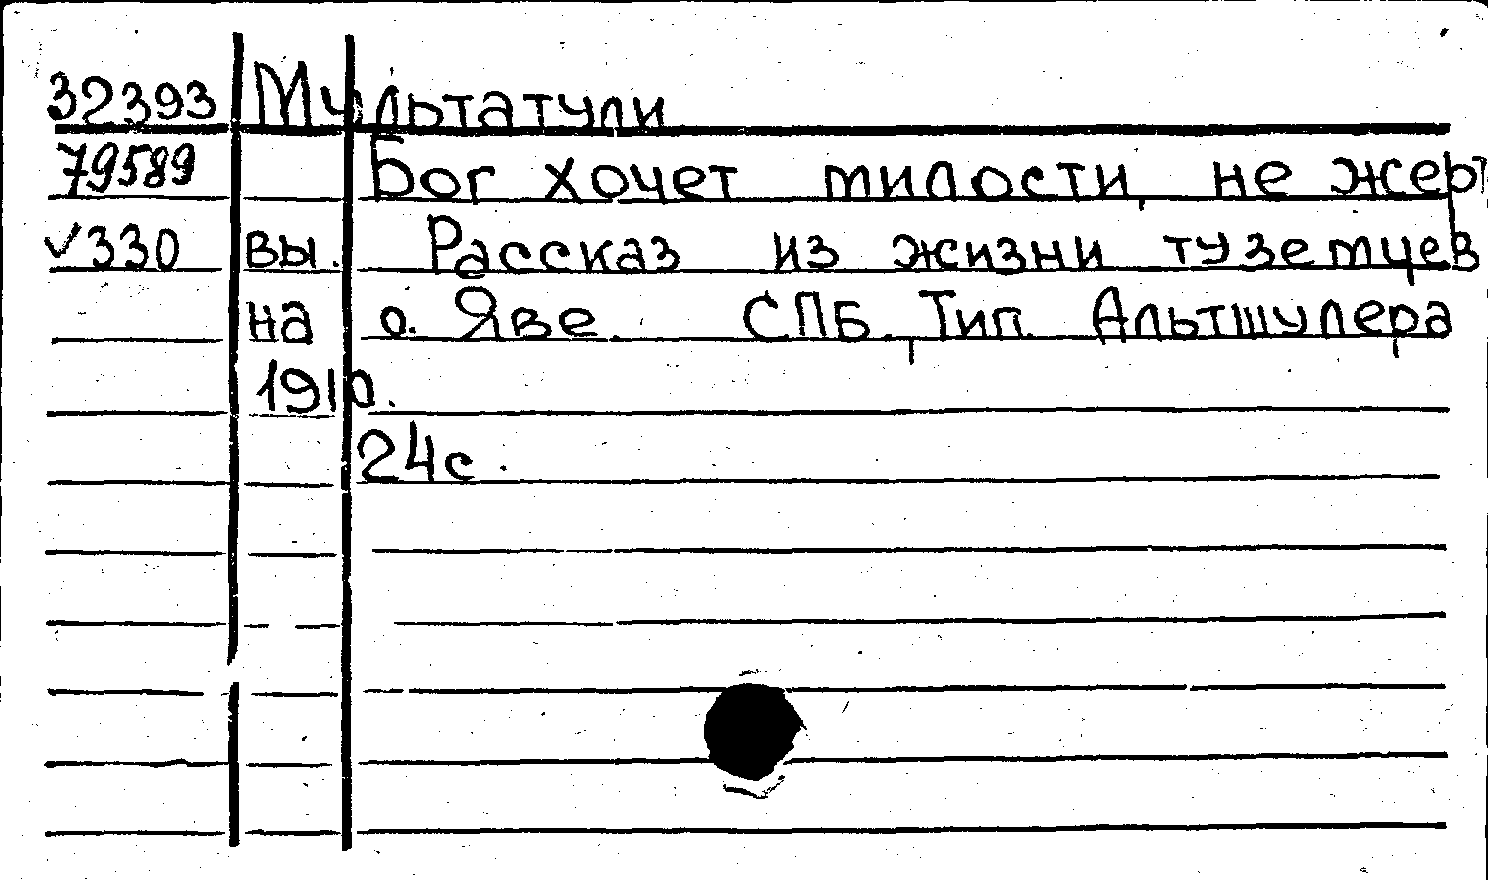 32393 Мультатули
79589 Бог хочет милости, не жерт
√330 вы. Рассказ из жизни туземцев
на о. Яве. СПБ. Тип. Альтшулера,
1910.
24с.